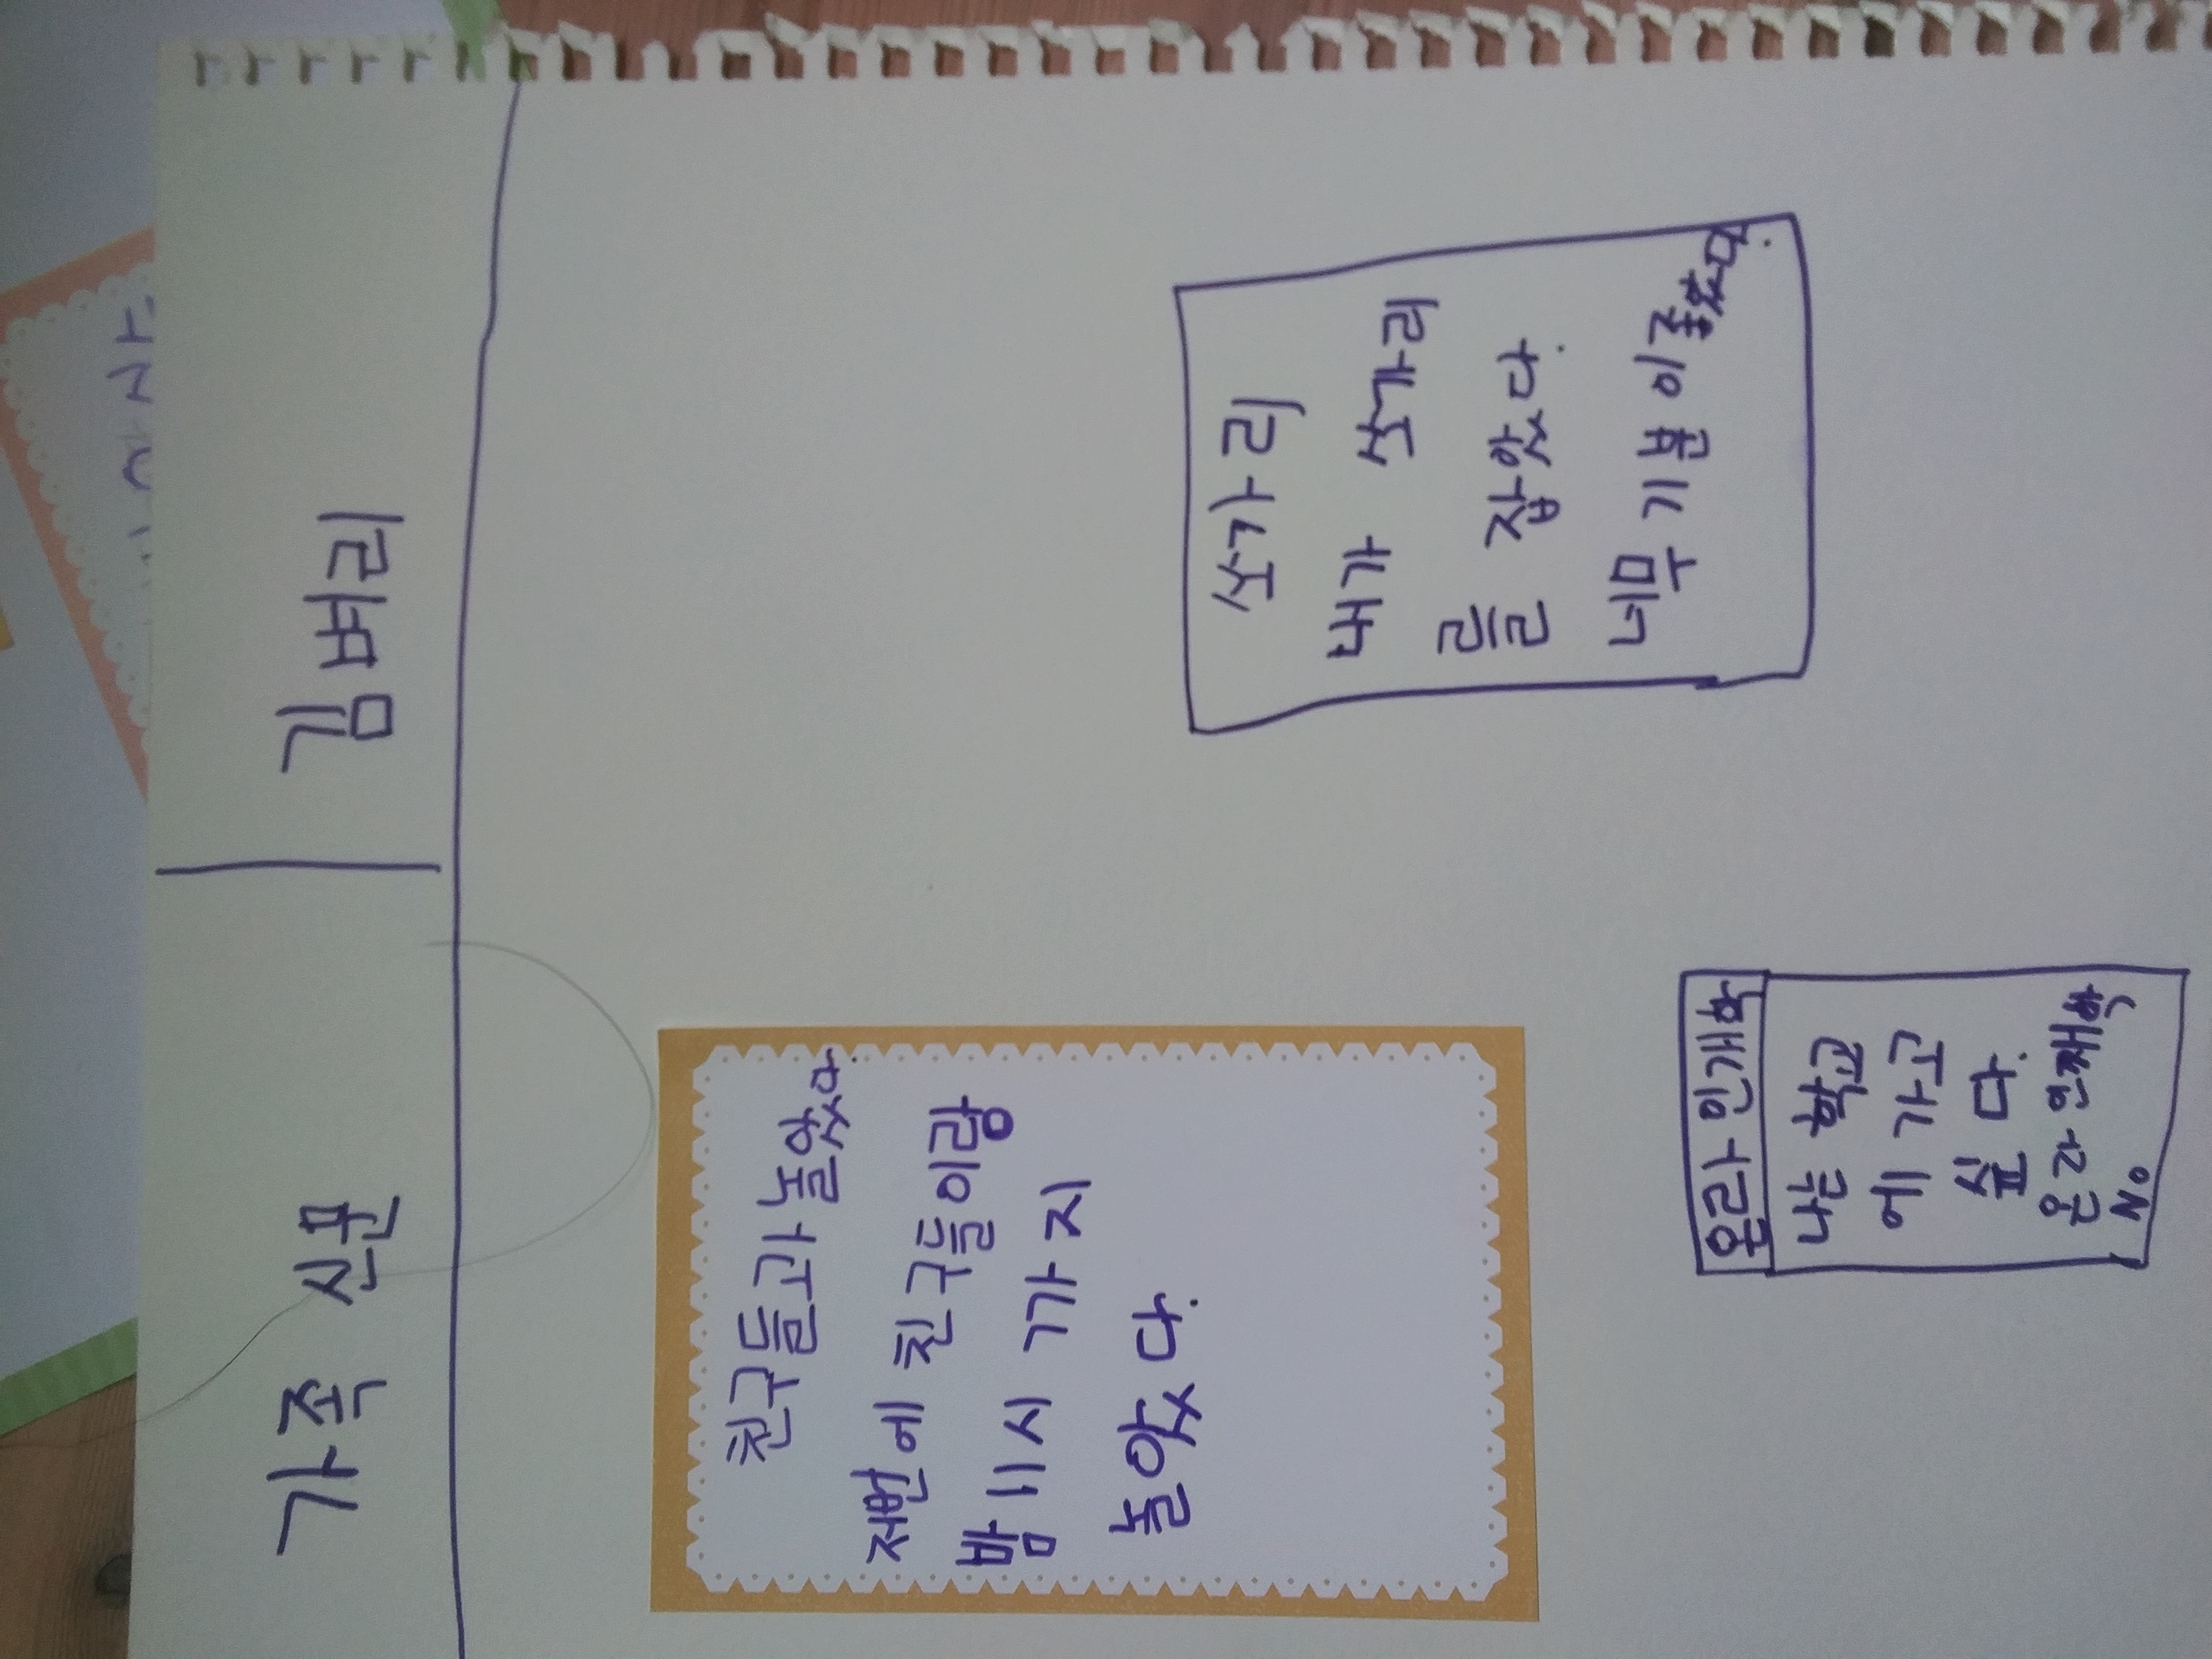 가족 신문
김벼리
친구들과 놀았다.
저번에 친구들이랑
밤 11시 까지
놀았다.
쏘가리
내가 쏘가리
를 잡았다.
너무 기분이 좋았다.
온라인개학
나는 학교
에 가고
싶다.
온라인개학
No